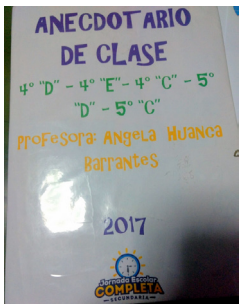 ANECDOTARIO
DE CLASE
4° "D" - 4° "E"- 4° "C" - 5°
"D" - 5° "C"
Profesora: Angela Huanca
Barrantes
2017
Jornada Escolar
COMPLETA
SECUNDARIA